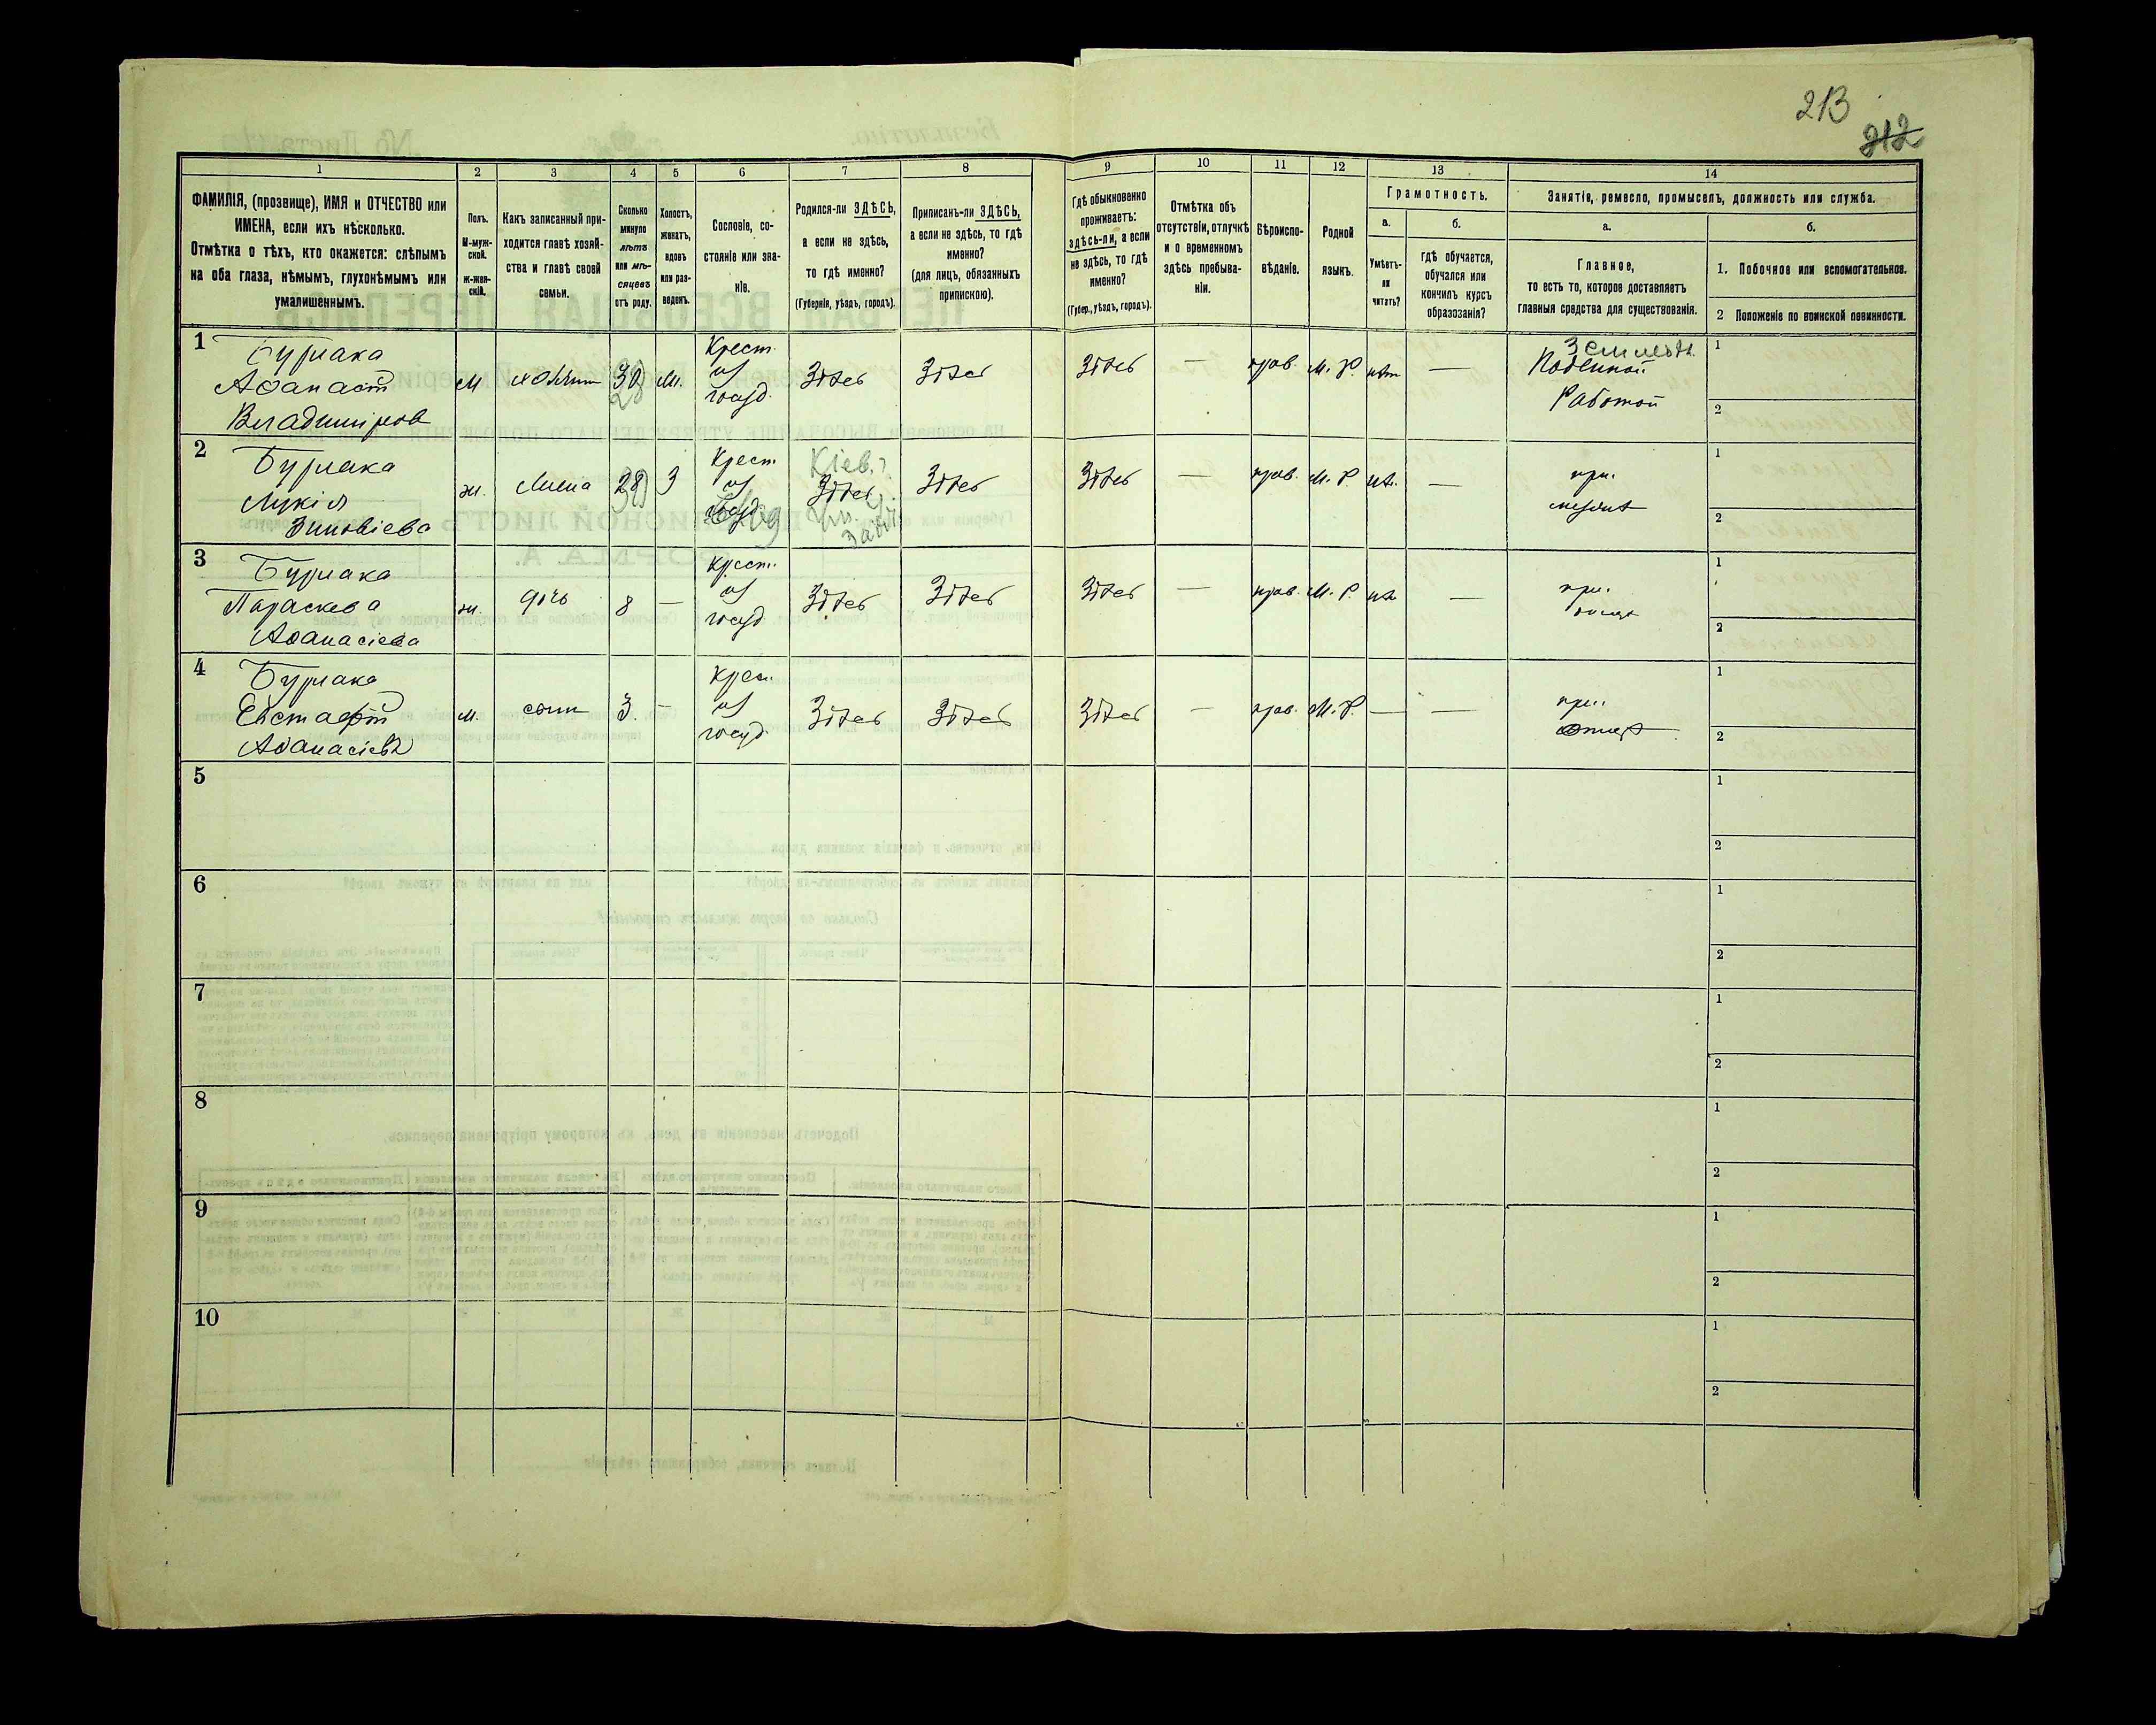 213
212
1
2
3
4
5
6
7
8
9
10
11
12
13
14
ФАМИЛІЯ, (прозвище), ИМЯ и ОТЧЕСТВО или
ИМЕНА, если ихъ нѣсколько.
Отмѣтка о тѣхъ, кто окажется: слѣпымъ
на оба глаза, нѣмымъ, глухонѣмымъ или
умалишеннымъ.
Полъ.
М-муж-
ской.
ж-жен-
скій.
Какъ записанный при-
ходится главѣ хозяй-
ства и главѣ своей
семьи.
Сколько
минуло
лѣтъ
или мѣ-
сяцевъ
отъ роду.
Холостъ,
женатъ,
вдовъ
или раз-
веденъ.
Сословіе, со-
стояніе или зва-
ніе.
Родился-ли ЗДѢСЬ,
а если не здѣсь,
то гдѣ именно?
(Губернія, уѣздъ, городъ).
Приписанъ-ли ЗДѢСЬ,
а если не здѣсь, то гдѣ
именно?
(для лицъ, обязанныхъ
припискою).
Гдѣ обыкновенно
проживаетъ:
здѣсь-ли, а если
не здѣсь, то гдѣ
именно?
(Губер., уѣздъ, городъ).
Отмѣтка объ
отсутствіи, отлучкѣ
и о временномъ
здѣсь пребыва-
ніи.
Вѣроиспо-
вѣданіе.
Родной
языкъ.
Грамотность.
а.
Умѣетъ-
ли
читать?
б.
гдѣ обучается,
обучался или
кончилъ курсъ
образозанія?
Занятіе, ремесло, промыселъ, должность или служба.
а.
Главное,
то есть то, которое доставляетъ
главныя средства для существованія.
б.
1. Побочное или вспомогательное.
2 Положеніе по воинской повинности.
1
Бурлака
Афанасій
Владиміров
м
хозяин
30
28
м.
Крест.
из
госуд.
Здѣсь
Здѣсь
Здѣсь
—
прав.
М. Р.
нѣт
—
Земледѣл.
Поденной
Работой
1
2
2
Бурлака
Лукія
Зиновіева
ж.
жена
28
30
З
Крест.
из
госуд.
Кіев. г.
Здѣсь
Здѣсь
Здѣсь
—
прав.
М. Р.
нѣ.
—
при
мужѣ
1
2
3
Бурлака
Параскева
Афанасіева
ж.
дочь
8
—
Крест.
из
госуд.
Здѣсь
Здѣсь
Здѣсь
—
прав.
М. Р.
нѣ
—
при
отцѣ
1
2
4
Бурлака
Евстафій
Афанасіевъ
м.
сын
3.
—
Крес.
из
госуд.
Здѣсь
Здѣсь
Здѣсь
—
прав.
М. Р.
—
—
при
отцѣ
1
2
5
1
2
6
1
2
7
1
2
8
1
2
9
1
2
10
1
2